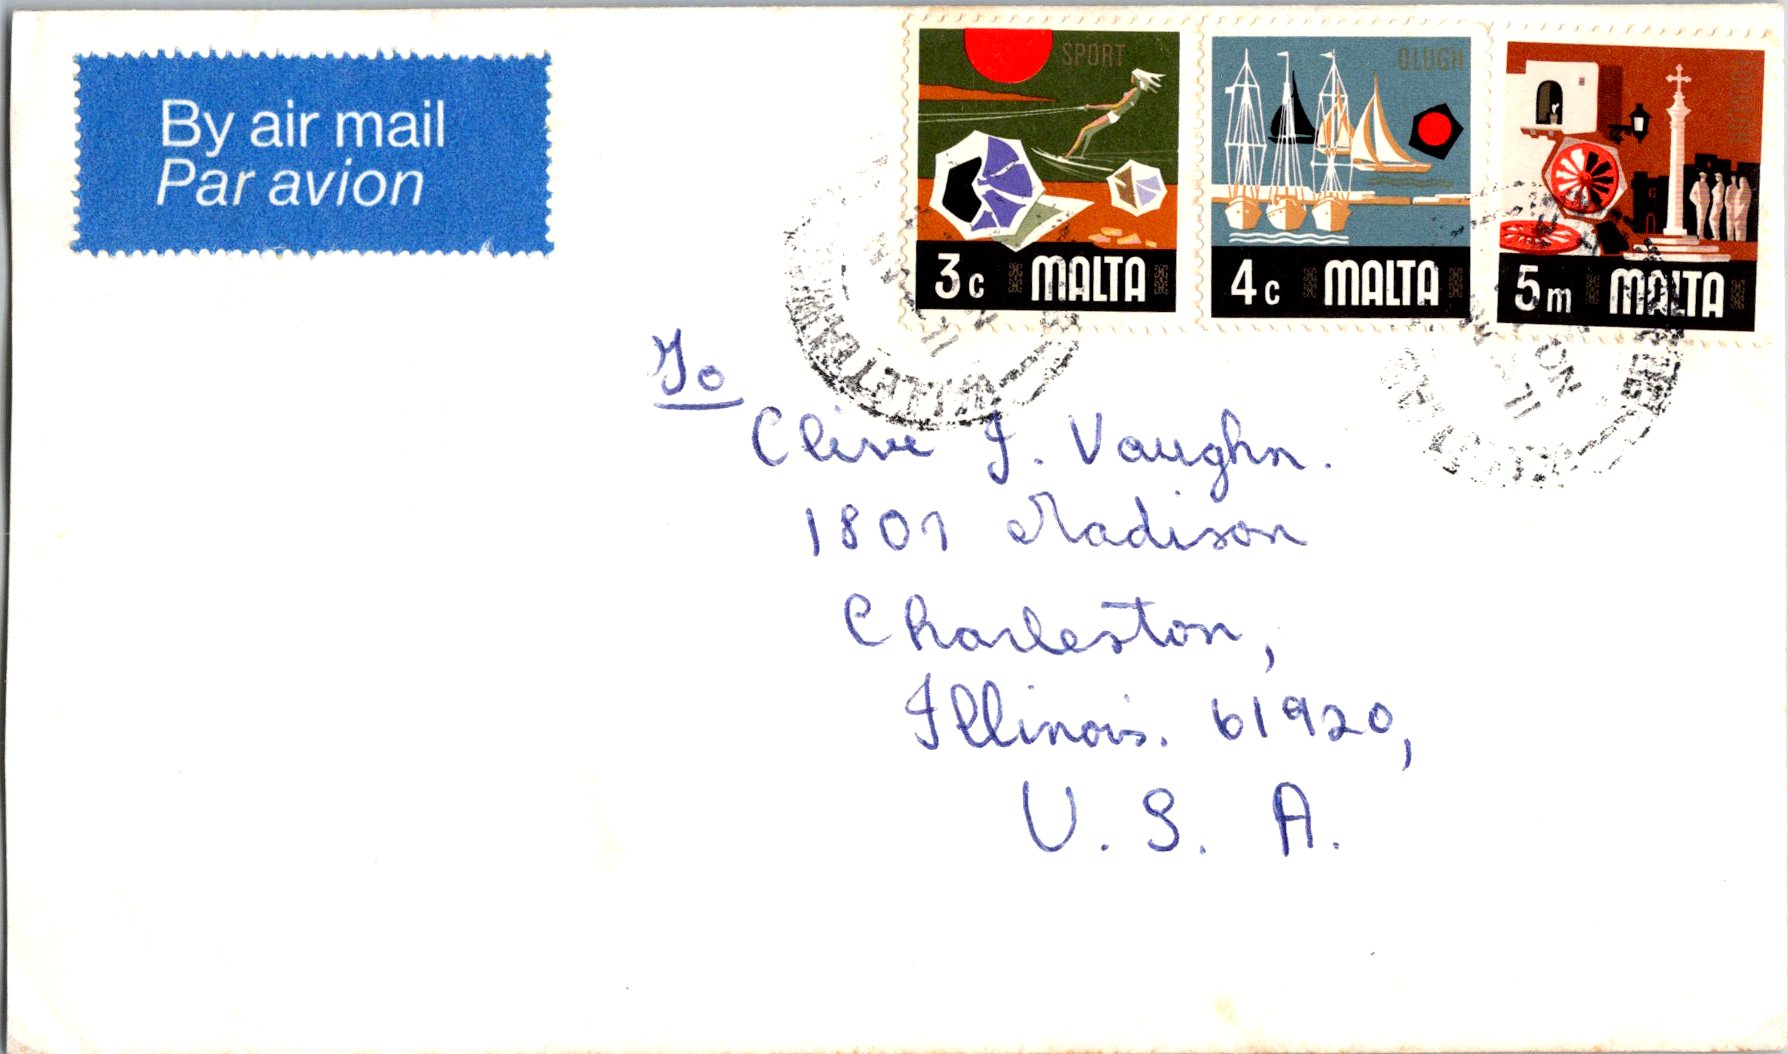 By air mail
Par avion
SPORT
3c MALTA
QLUGH
4c MALTA
5m MALTA
VALLETTA
To
Clive J. Vaughn.
1801 Madison
Charleston,
Illinois. 61920,
U. S. A.